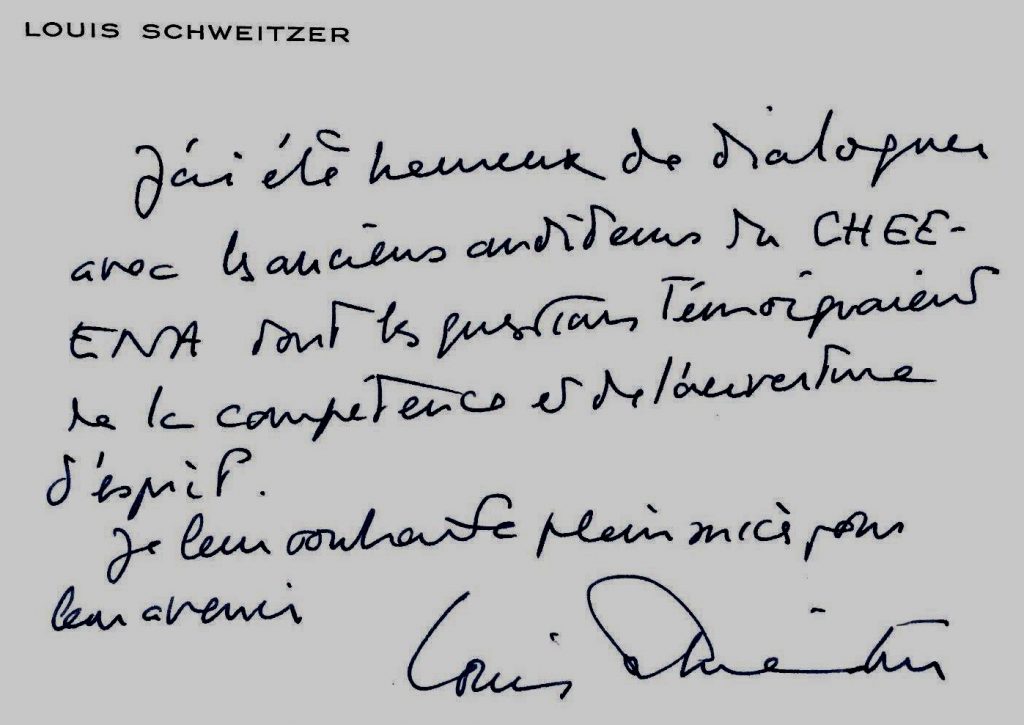 LOUIS SCHWEITZER
J'ai été heureux de dialoguer
avec les anciens auditeurs du CHEE-
ENA dont les questions témoignaient
de la compétence et de l'ouverture
d'esprit.
Je leur souhaite plein succès pour
leur avenir
Louis Schweitzer